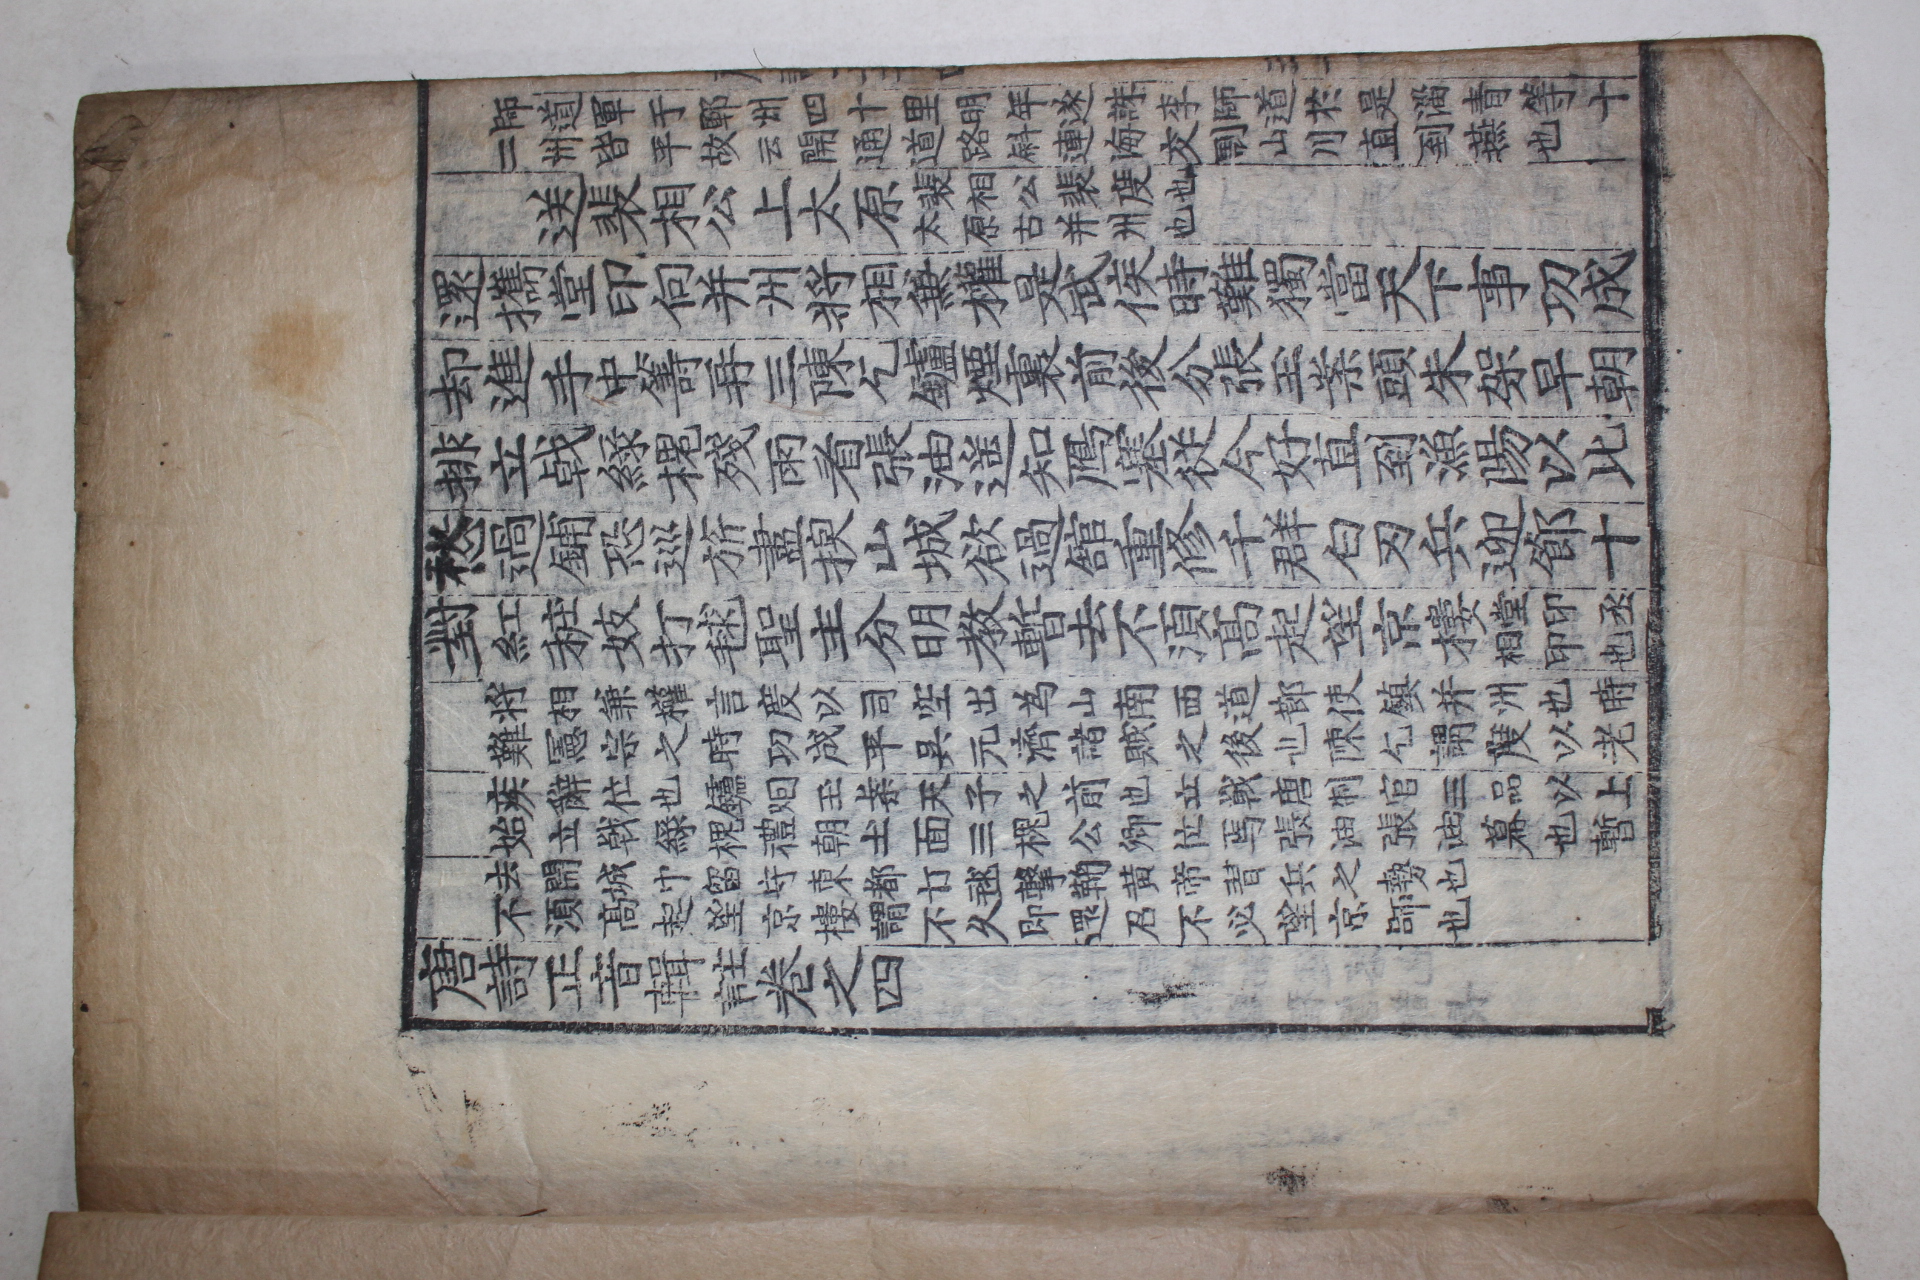 師道軍于鄆州四十里明年遂誅李師道於是淄青等十
二州皆平故云開通道路斜連海交割山川直到燕也
送裴相公上太原
裴相公裴度也
太原古并州也
還攜堂印向并州將相兼權是武侯時難獨當天下事功成
却進手中籌再三陳乞鑪煙裏前後分張玉案頭朱架早朝
排立戟綠槐殘雨看張油遥知鴈塞從今好直到漁陽以此
愁過鋪恐巡旂盡換山城欲過館重修千群白刃兵迎節十
對紅粧妓打毬聖主分明教暫去不湏髙起望京樓
堂印丞
相印也
將相兼權言度以司空出為山南西道節使鎮并州也時
難憲宗之時功成平具元濟諸賊之後也陳乞謂度以老
疾辭位也鑪烟玉案天子之前也立戟唐制官三品以上
始立戟綠槐禮朝士面三槐公卿位焉張油張油幕也暫
去開城巾留守東都打毬擊鞠黄帝習兵之勢也
不湏髙起望京樓謂不久即還召不必望京師也
唐詩正音輯註卷之四